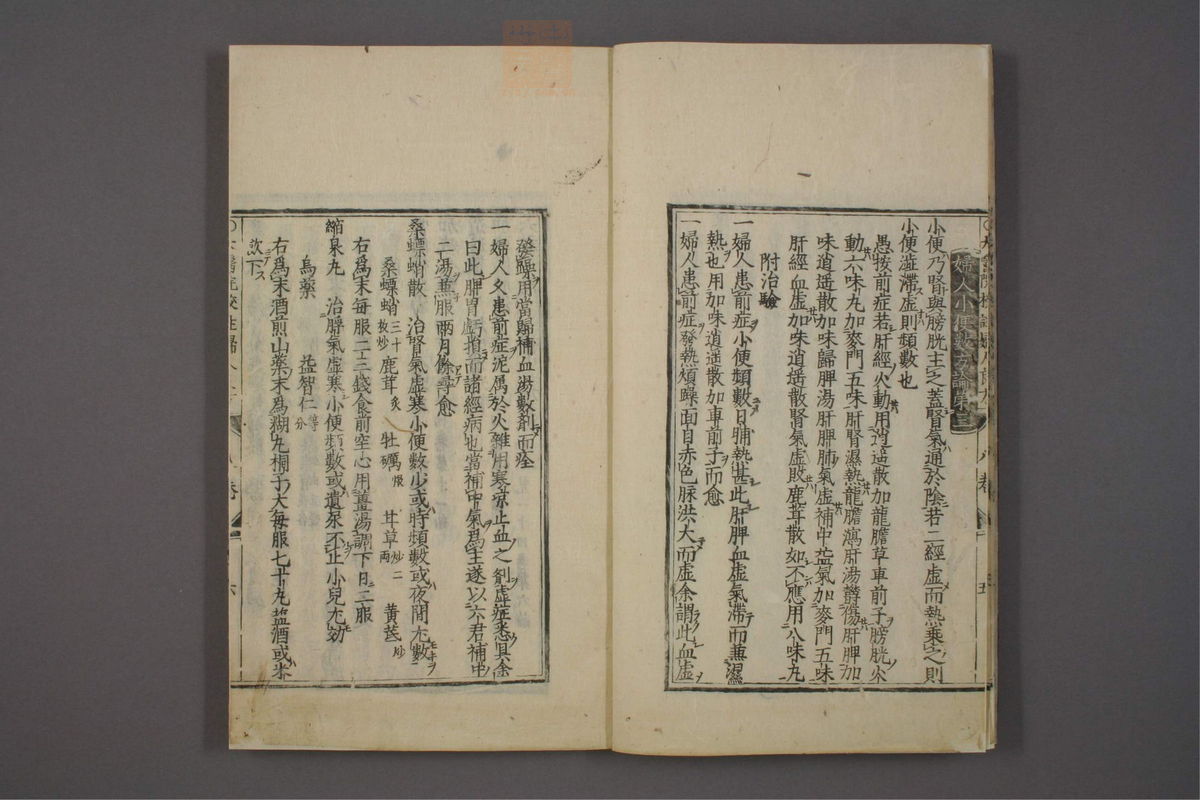 婦人小便數方論第三
小便乃腎與膀胱主之蓋腎氣通於陰若二經虛而熱乘之則
小便澁滯虛則頻數也
愚按前症若肝經火動用逍遥散加龍膽草車前子膀胱火
動六味丸加麥門五味肝腎濕熱龍膽瀉肝湯欝傷肝脾加
味逍遥散加味歸脾湯肝脾肺氣虛補中益氣加麥門五味
肝經血虛加味逍遥散腎氣虛敗鹿茸散如不應用八味丸
附治驗
一婦人患前症小便頻數日晡熱甚此肝脾血虛氣滯而兼濕
熱也用加味逍遥散加車前子而愈
一婦人患前症發熱煩躁面目赤色脉洪大而虛余謂此血虛
發躁用當歸補血湯數劑而痊
一婦人久患前症泥偶於火雜用寒凉止血之劑虛症悉具余
曰此脾胃虧損而諸經病也當補中氣爲主遂以六君補中
二湯兼服兩月餘尋愈
桑螵蛸散 治腎氣虛寒小便數少或時頻數或夜間尤數
桑螵蛸三十枚炒 鹿茸炙 牡礪煅 甘草炒二両 黄芪炒
右爲末每服二三錢食前空心用薑湯調下日三服
縮泉丸 治脬氣虛寒小便頻數或遺尿不止小兒尤効
烏藥 益智仁等分
右爲末酒煎山藥末爲糊丸桐子大每服七十丸盐酒或米
飲下